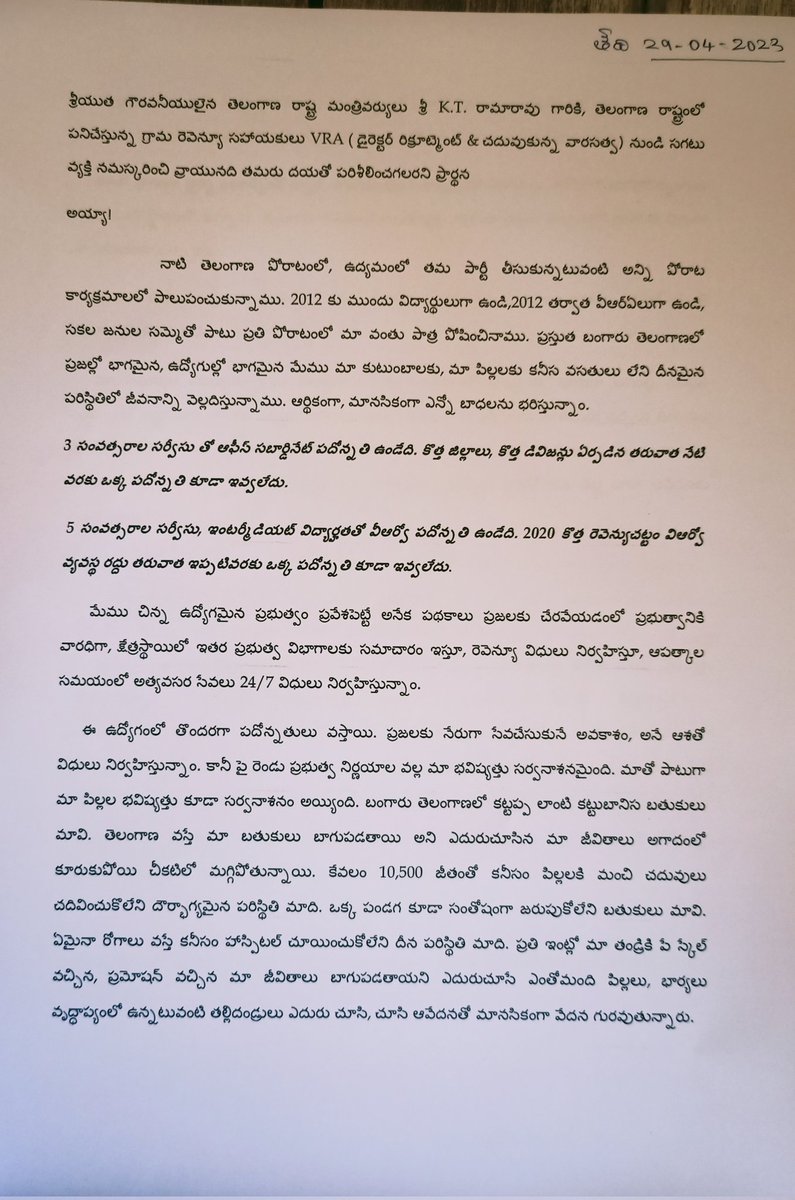 తేది 29-04-2023
శ్రీయుత గౌరవనీయులైన తెలంగాణ రాష్ట్ర మంత్రివర్యులు శ్రీ K.T. రామారావు గారికి, తెలంగాణ రాష్ట్రంలో
పనిచేస్తున్న గ్రామ రెవెన్యూ సహాయకులు VRA ( డైరెక్టర్ రిక్రూట్మెంట్ & చదువుకున్న వారసత్వ) నుండి సగటు
వ్యక్తి నమస్కరించి వ్రాయునది తమరు దయతో పరిశీలించగలరని ప్రార్థన
అయ్యా!
నాటి తెలంగాణ పోరాటంలో, ఉద్యమంలో తమ పార్టీ తీసుకున్నటువంటి అన్ని పోరాట
కార్యక్రమాలలో పాలుపంచుకున్నాము. 2012 కు ముందు విద్యార్థులుగా ఉండి,2012 తర్వాత వీఆర్ఏలుగా ఉండి,
సకల జనుల సమ్మెతో పాటు ప్రతి పోరాటంలో మా వంతు పాత్ర పోషించినాము. ప్రస్తుత బంగారు తెలంగాణలో
ప్రజల్లో భాగమైన, ఉద్యోగుల్లో భాగమైన మేము మా కుటుంబాలకు, మా పిల్లలకు కనీస వసతులు లేని దీనమైన
పరిస్థితిలో జీవనాన్ని వెల్లదిస్తున్నాము. ఆర్థికంగా, మానసికంగా ఎన్నో బాధలను భరిస్తున్నాం.
3 సంవత్సరాల సర్వీసు తో ఆఫీస్ సబార్డినేట్ పదోన్నతి ఉండేది. కొత్త జిల్లాలు, కొత్త డివిజన్లు ఏర్పడిన తరువాత నేటి
వరకు ఒక్క పదోన్నతి కూడా ఇవ్వలేదు.
5 సంవత్సరాల సర్వీసు, ఇంటర్మీడియట్ విద్యార్హతతో వీఆర్వో పదోన్నతి ఉండేది. 2020 కొత్త రెవెన్యుచట్టం విఆర్వో
వ్యవస్థ రద్దు తరువాత ఇప్పటివరకు ఒక్క పదోన్నతి కూడా ఇవ్వలేదు.
మేము చిన్న ఉద్యోగమైన ప్రభుత్వం ప్రవేశపెట్టే అనేక పథకాలు ప్రజలకు చేరవేయడంలో ప్రభుత్వానికి
వారధిగా, క్షేత్రస్థాయిలో ఇతర ప్రభుత్వ విభాగాలకు సమాచారం ఇస్తూ, రెవెన్యూ విధులు నిర్వహిస్తూ, ఆపత్కాల
సమయంలో అత్యవసర సేవలు 24/7 విధులు నిర్వహిస్తున్నాం.
ఈ ఉద్యోగంలో తొందరగా పదోన్నతులు వస్తాయి. ప్రజలకు నేరుగా సేవచేసుకునే అవకాశం, అనే ఆశతో
విధులు నిర్వహిస్తున్నాం. కానీ పై రెండు ప్రభుత్వ నిర్ణయాల వల్ల మా భవిష్యత్తు సర్వనాశనమైంది. మాతో పాటుగా
మా పిల్లల భవిష్యత్తు కూడా సర్వనాశనం అయ్యింది. బంగారు తెలంగాణలో కట్టప్ప లాంటి కట్టుబానిస బతుకులు
మావి. తెలంగాణ వస్తే మా బతుకులు బాగుపడతాయి అని ఎదురుచూసిన మా జీవితాలు అగాదంలో
కూరుకుపోయి చీకటిలో మగ్గిపోతున్నాయి. కేవలం 10,500 జీతంతో కనీసం పిల్లలకి మంచి చదువులు
చదివించుకోలేని దౌర్భాగ్యమైన పరిస్థితి మాది. ఒక్క పండగ కూడా సంతోషంగా జరుపుకోలేని బతుకులు మావి.
ఏమైనా రోగాలు వస్తే కనీసం హాస్పిటల్ చూయించుకోలేని దీన పరిస్థితి మాది. ప్రతి ఇంట్లో మా తండ్రికి పే స్కేల్
వచ్చిన, ప్రమోషన్ వచ్చిన మా జీవితాలు బాగుపడతాయని ఎదురుచూసే ఎంతోమంది పిల్లలు, భార్యలు
వృద్ధాప్యంలో ఉన్నటువంటి తల్లిదండ్రులు ఎదురు చూసి, చూసి ఆవేదనతో మానసికంగా వేదన గురవుతున్నారు.